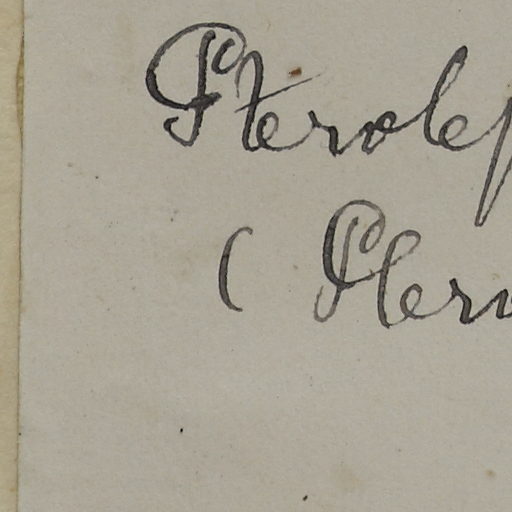 Pterolep
( Pter